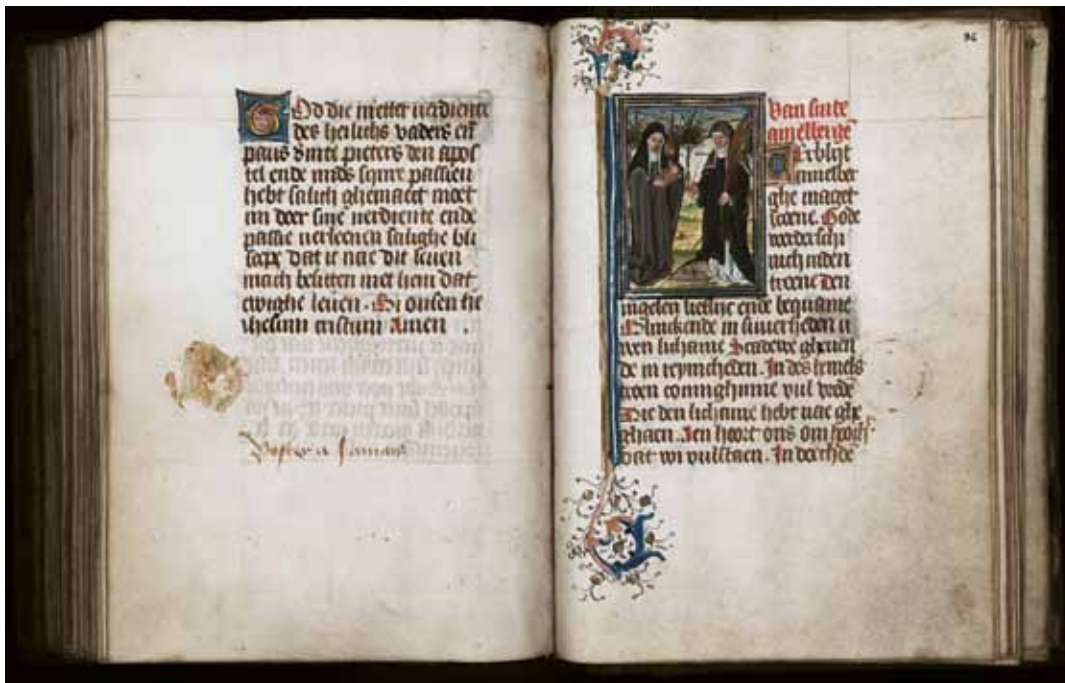 God die mitter verdiente
des heilichs vaders en̄
paus sinte pieters den apos
tel ende mids sijnre passien
hebt salich ghemaect moet
mi doer sine verdiente ende
passie verleenen salighe bli
scepe dat ic nae dit leuen
mach besitten met hem dat
ewighe leuen. Bi onsen he
ihesum cristum Amen.
96
Van sinte
amelberge
Verblijt
amelber
ghe maget
scone. Gode
weerdich
inden
troene Den
ingelen lieflijc ende bequame
Blinckende in suuerheden u
wen lichame Scadewe gheuen
de in reynicheden. In des hemels
troen coninghinne vul vrede
Die den lichame hebt
ghaen. Ien hoort ons om hoghe
dat wi vulstaen. In deechde